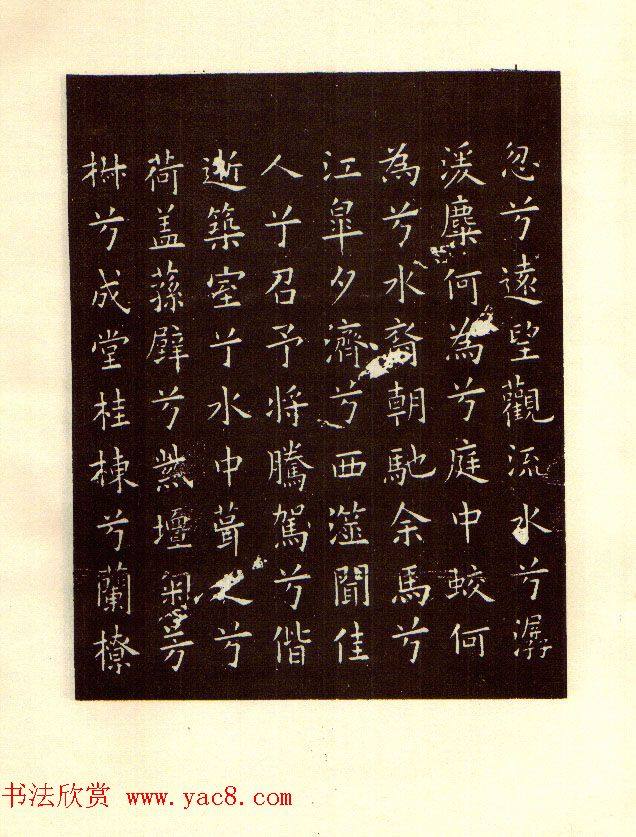 忽兮遠望觀流水兮潺
湲麋何為兮庭中蛟何
為兮水裔朝馳余馬兮
江皋夕濟兮西澨聞佳
人兮召予將騰駕兮偕
逝築室兮水中葺之兮
荷盖蓀壁兮紫壇匊芳
椒兮成堂桂棟兮蘭橑
书法欣赏 www.yac8.com